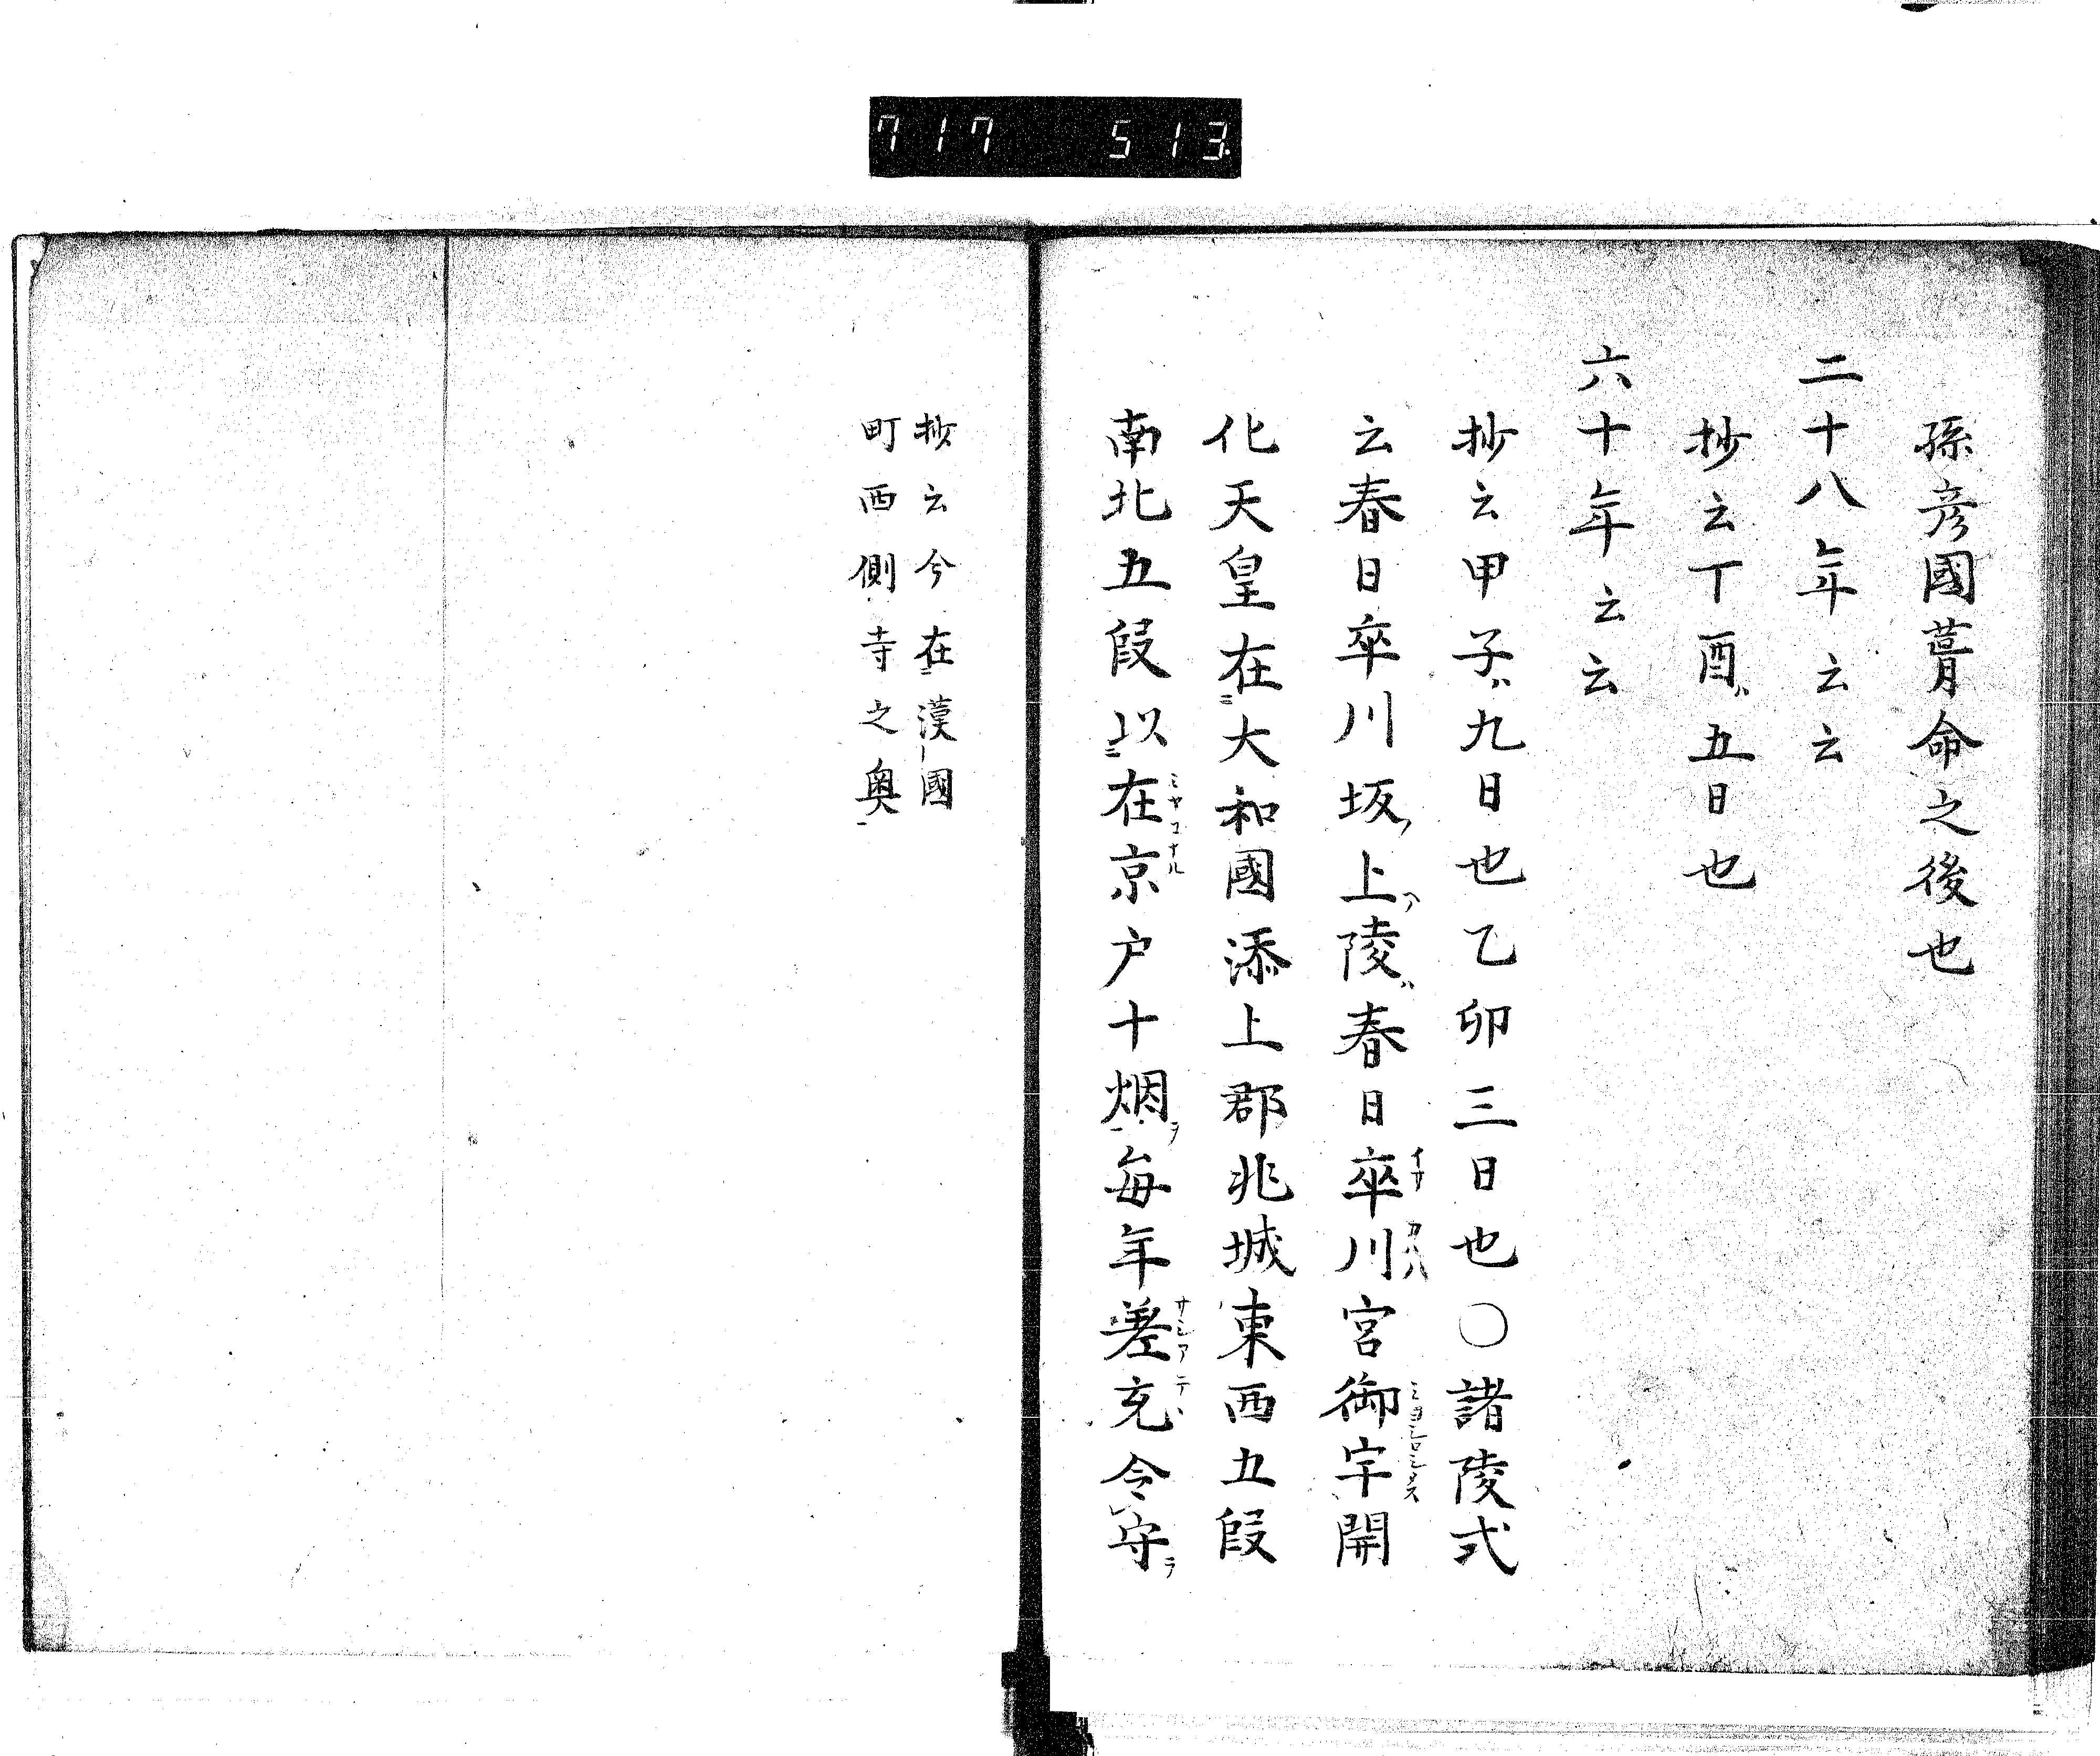 717 513
孫彦國葺命之後也
二十八年云云
抄云丁酉ハ五日也
六十年云云
抄云甲子ハ九日也乙卯三日也〇諸陵式
云春日率川坂ノ上ノ陵ハ春日率川宮御宇開
化天皇在大和國添上郡兆城東西五段
南北五段以在京戸十烟ヲ毎年差充令守ラ
抄云今在漢國
町西側寺之奥